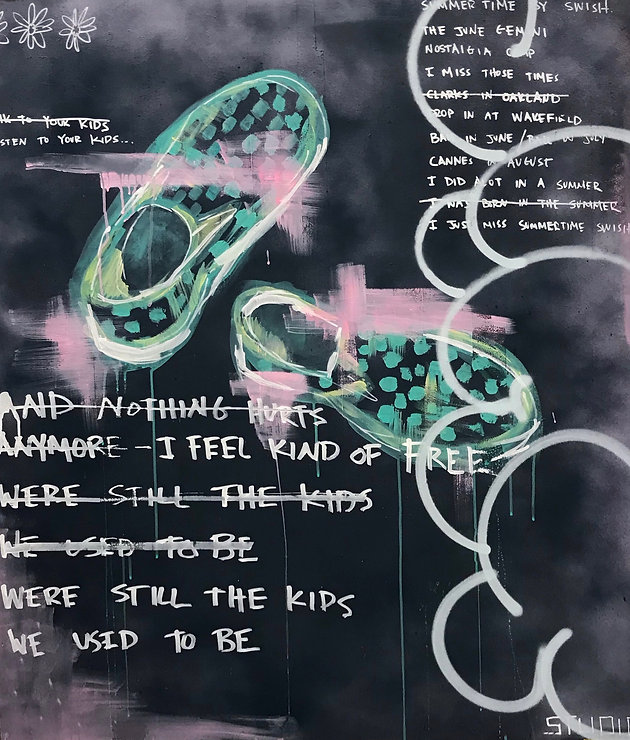 SUMMER TIME BY SWISH.
THE JUNE GEMINI
NOSTALGIA
I MISS THOSE TIMES
CLARKS IN OAKLAND
DROP IN AT WAKEFIELD
IN JUNE / IN JULY
CANNES IN AUGUST
I DID ALOT IN A SUMMER
I WAS BORN IN THE SUMMER
I JUS MISS SUMMERTIME SWISH
TO YOUR KIDS
STEN TO YOUR KIDS...
AND NOTHING HURTS
ANYMORE - I FEEL KIND OF FREE
WERE STILL THE KIDS
WE USED TO BE
WERE STILL THE KIDS
WE USED TO BE
STUDIO